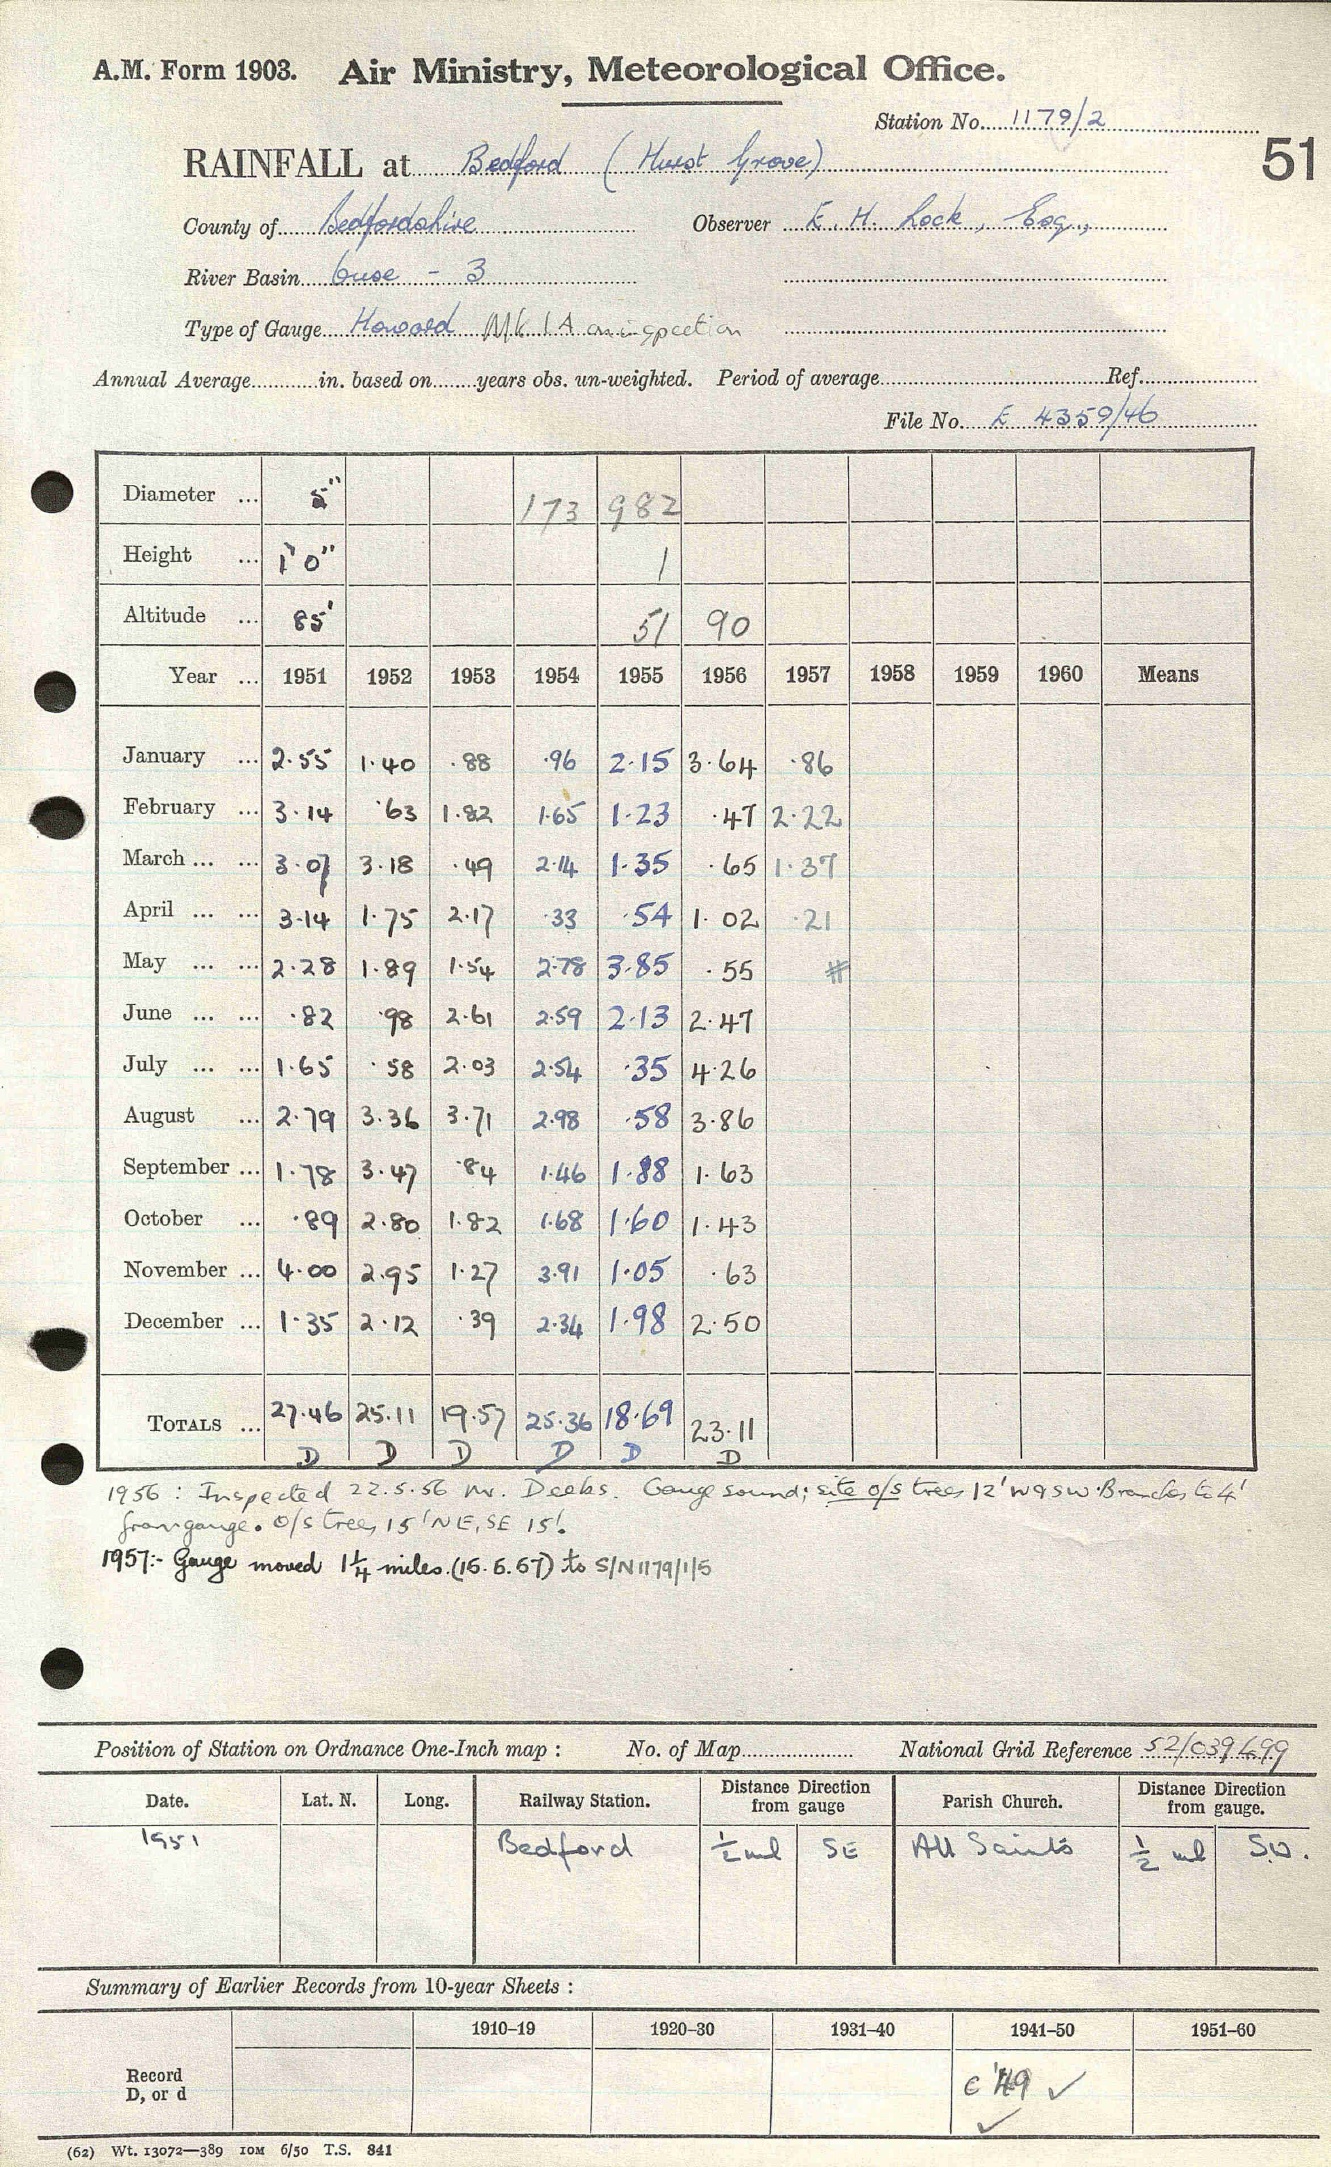 A.M. Form 1903. Air Ministry, Meteorological Office.
Station No. 1179/2
51
RAINFALL at Bedford (Hurst Grove)
County of Bedfordshire Observer E. H. Lock, Esq.,
River Basin Ouse - 3
Type of Gauge Howard MK 1A on inspection
Annual Average in. based on years obs. un-weighted. Period of average Ref.
File No. E 4359/46
Diameter ... 5" 173 982
Height ... 1' 0" 1
Altitude ... 85' 51 90
Year ... 1951 1952 1953 1954 1955 1956 1957 1958 1959 1960 Means
January ... 2.55 1.40 .88 .96 2.15 3.64 .86
February ... 3.14 .63 1.82 1.65 1.23 .47 2.22
March ... ... 3.07 3.18 .49 2.14 1.35 .65 1.37
April ... ... 3.14 1.75 2.17 .33 .54 1.02 .21
May ... ... 2.28 1.89 1.54 2.78 3.85 .55 #
June ... ... .82 .98 2.61 2.59 2.13 2.47
July ... ... 1.65 .58 2.03 2.54 .35 4.26
August ... 2.79 3.36 3.71 2.98 .58 3.86
September ... 1.78 3.47 .84 1.46 1.88 1.63
October ... .89 2.80 1.82 1.68 1.60 1.43
November ... 4.00 2.95 1.27 3.91 1.05 .63
December ... 1.35 2.12 .39 2.34 1.98 2.50
TOTALS ... 27.46 25.11 19.57 25.36 18.69 23.11
D D D D D D
1956 : Inspected 22.5.56 Mr. Deeks. Gauge sound; site o/s trees 12' W & SW. Branches to 4'
from gauge. O/S trees 15' NE, SE 15'.
1957:- Gauge moved 1¼ miles. (15.5.57) to S/N 1179/1/5
Position of Station on Ordnance One-Inch map : No. of Map National Grid Reference 52/039499
Date. Lat. N. Long. Railway Station. Distance Direction from gauge Parish Church. Distance Direction from gauge.
1951 Bedford ½ ml SE All Saints ½ ml SW.
Summary of Earlier Records from 10-year Sheets :
1910–19 1920–30 1931–40 1941–50 1951–60
Record
D, or d
c '49 ✓
✓
(62) Wt. 13072—389 10M 6/50 T.S. 841